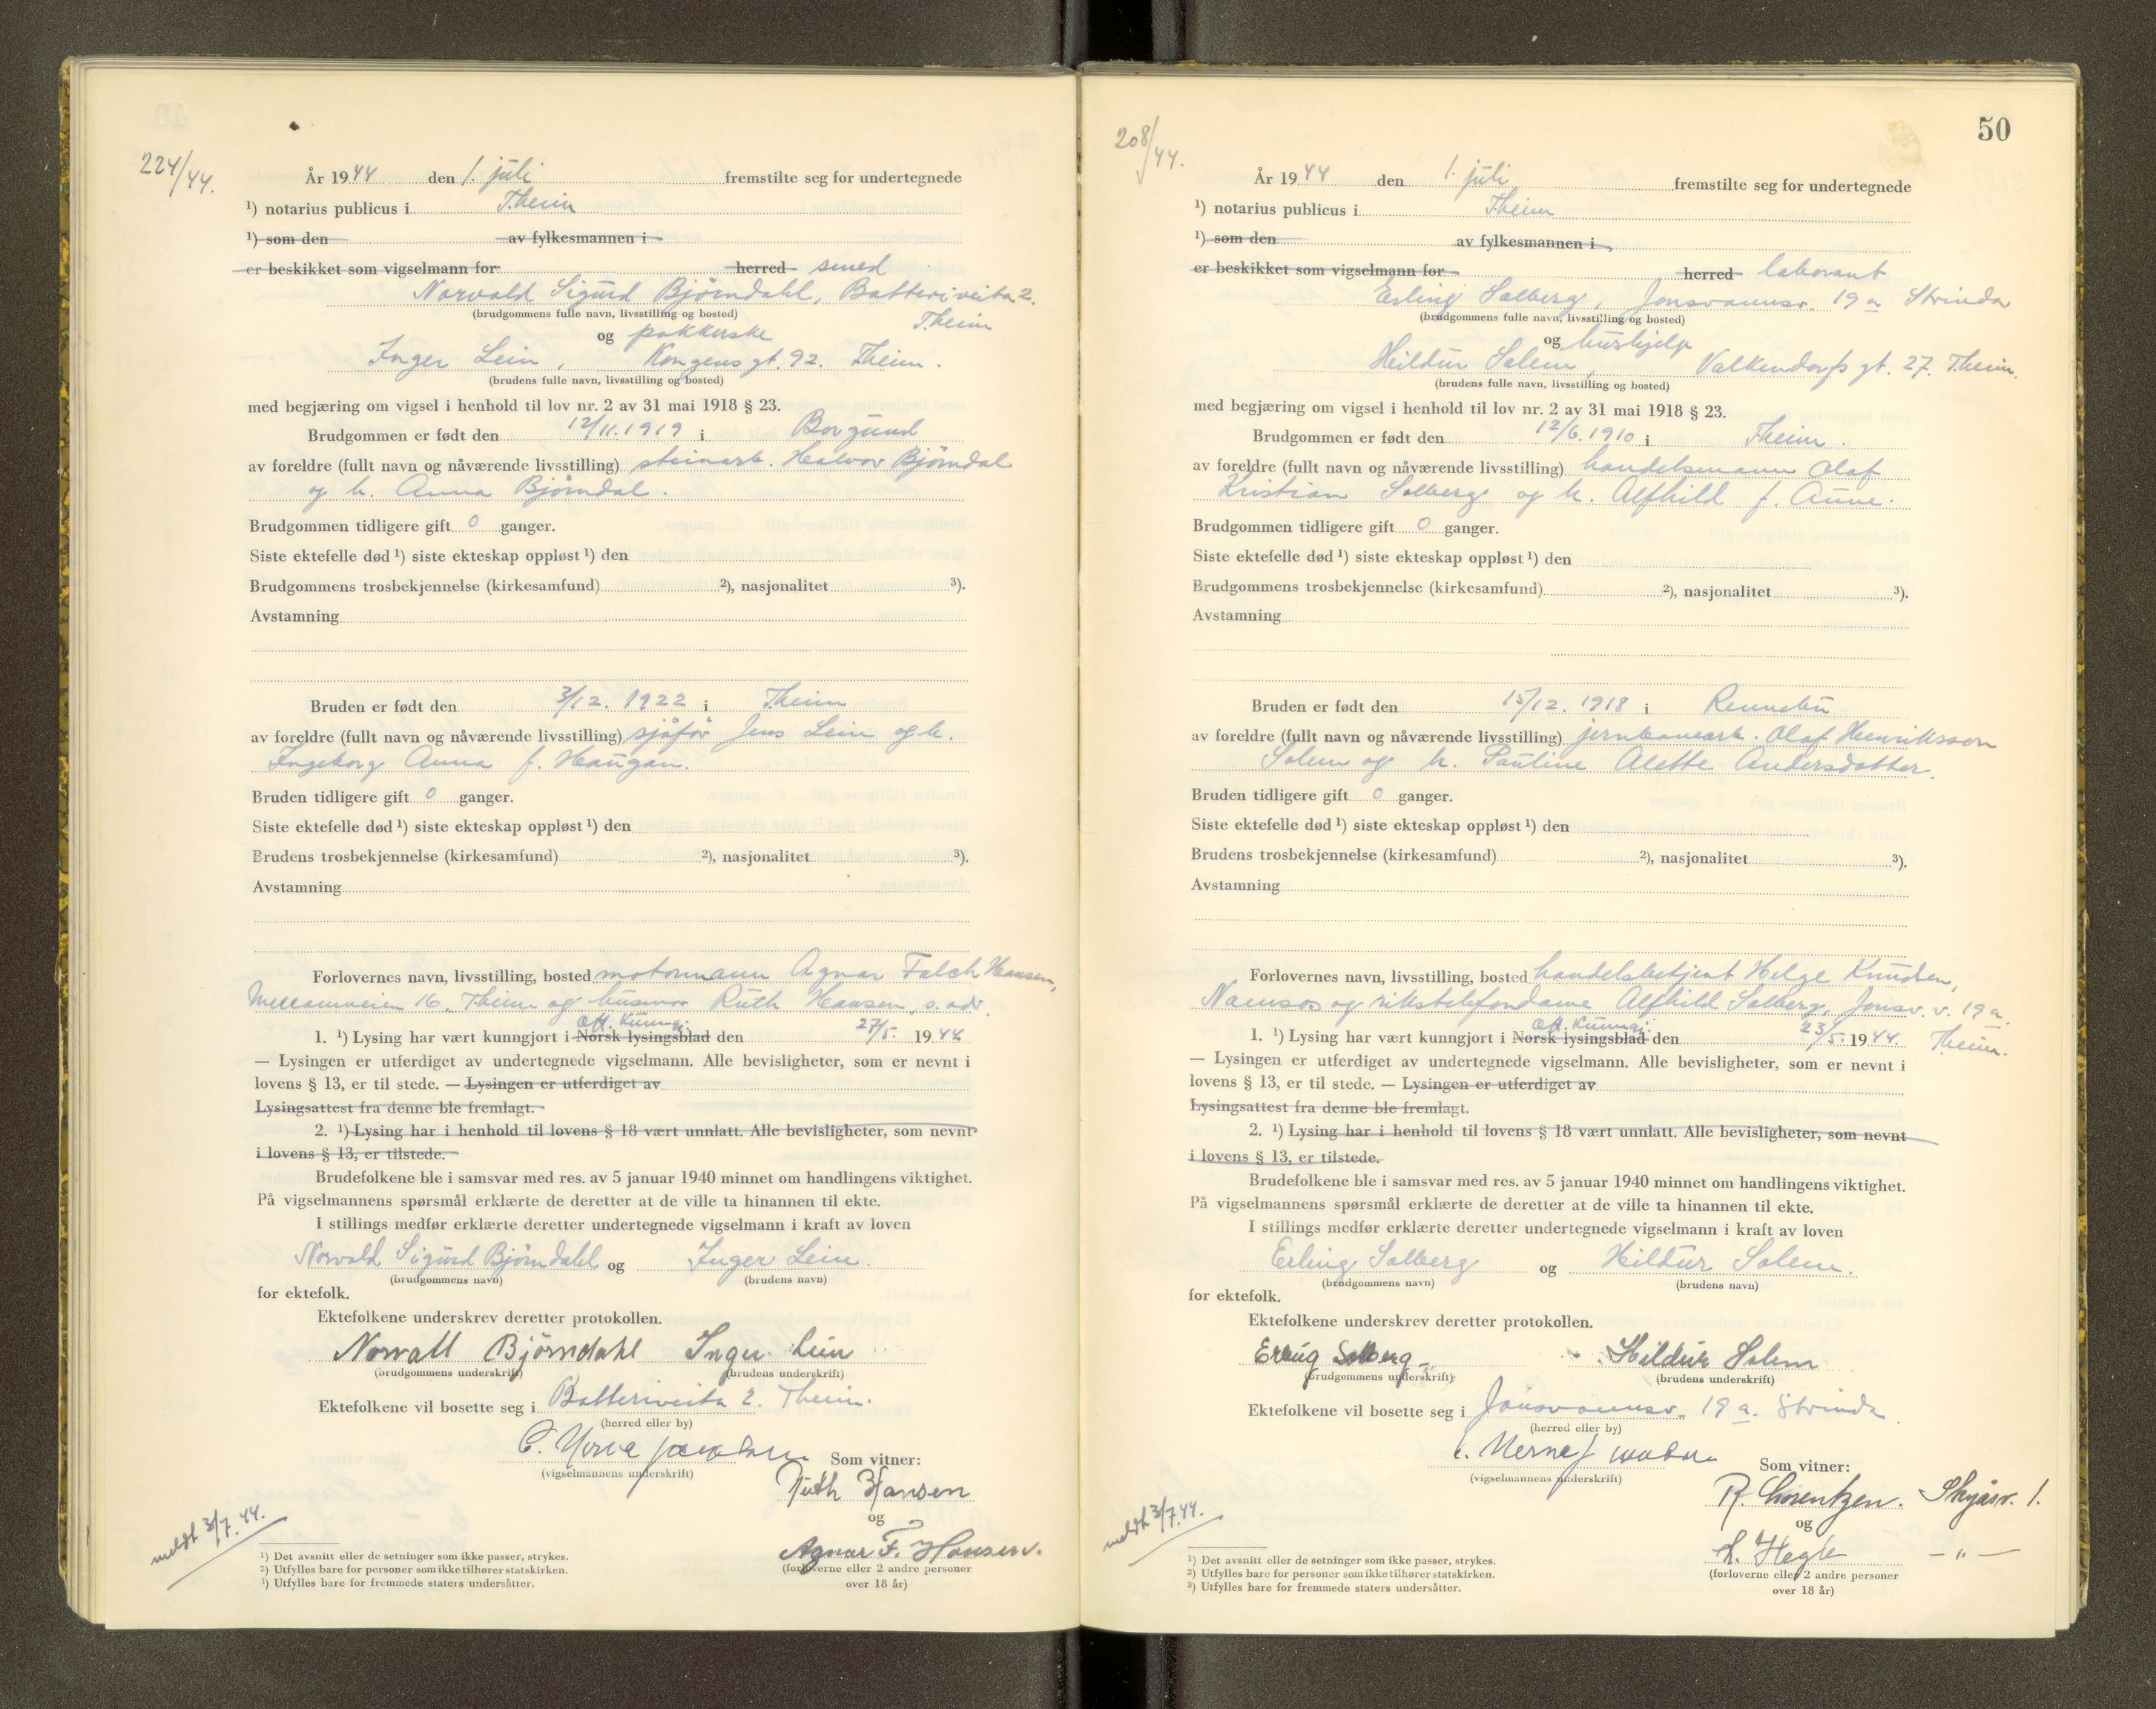 224/44.
År 1944 den 1. juli fremstilte seg for undertegnede
¹) notarius publicus i T.heim
¹) som den av fylkesmannen i
er beskikket som vigselmann for herred smed
Norvald Sigurd Björndahl, Batteriveita 2.
(brudgommens fulle navn, livsstilling og bosted) T.heim
og pakkerske
Inger Lein, Kongens gt. 92. T.heim.
(brudens fulle navn, livsstilling og bosted)
med begjæring om vigsel i henhold til lov nr. 2 av 31 mai 1918 § 23.
Brudgommen er født den 12/11.1919 i Borgund
av foreldre (fullt navn og nåværende livsstilling) steinarb. Halvor Björndal
og h. Anna Björndal.
Brudgommen tidligere gift 0 ganger.
Siste ektefelle død ¹) siste ekteskap oppløst ¹) den
Brudgommens trosbekjennelse (kirkesamfund) ²), nasjonalitet ³).
Avstamning
Bruden er født den 3/12. 1922 i T.heim
av foreldre (fullt navn og nåværende livsstilling) sjåför Jens Lein og h.
Ingeborg Anna f. Haugan.
Bruden tidligere gift 0 ganger.
Siste ektefelle død ¹) siste ekteskap oppløst ¹) den
Brudens trosbekjennelse (kirkesamfund) ²), nasjonalitet ³).
Avstamning
Forlovernes navn, livsstilling, bosted motormann Agnar Falch Hansen,
16, T.heim og husmor Ruth Hansen, s. adr.
Off. kunngj.
1. ¹) Lysing har vært kunngjort i Norsk lysingsblad den 27/5. 1944
— Lysingen er utferdiget av undertegnede vigselmann. Alle bevisligheter, som er nevnt i
lovens § 13, er til stede. — Lysingen er utferdiget av
Lysingsattest fra denne ble fremlagt.
2. ¹) Lysing har i henhold til lovens § 18 vært unnlatt. Alle bevisligheter, som nevnt
i lovens § 13, er tilstede.
Brudefolkene ble i samsvar med res. av 5 januar 1940 minnet om handlingens viktighet.
På vigselmannens spørsmål erklærte de deretter at de ville ta hinannen til ekte.
I stillings medfør erklærte deretter undertegnede vigselmann i kraft av loven
Norvald Sigurd Björndahl og Inger Lein.
(brudgommens navn) (brudens navn)
for ektefolk.
Ektefolkene underskrev deretter protokollen.
Norvald Björndahl Inger Lein
(brudgommens underskrift) (brudens underskrift)
Ektefolkene vil bosette seg i Batteriveita 2. T.heim.
(herred eller by)
Som vitner:
(vigselmannens underskrift)
Ruth Hansen
og
Agnar F. Hansen.
(forloverne eller 2 andre personer
over 18 år)
meldt 3/7.44.
¹) Det avsnitt eller de setninger som ikke passer, strykes.
²) Utfylles bare for personer som ikke tilhører statskirken.
³) Utfylles bare for fremmede staters undersåtter.
50
208/44.
År 1944 den 1. juli fremstilte seg for undertegnede
¹) notarius publicus i T.heim
¹) som den av fylkesmannen i
er beskikket som vigselmann for herred laborant
Erling Solberg, Jonsvannsv. 19a Strinda
(brudgommens fulle navn, livsstilling og bosted)
og hushjelp
Hildur Solem, Valkendorfs gt. 27. T.heim.
(brudens fulle navn, livsstilling og bosted)
med begjæring om vigsel i henhold til lov nr. 2 av 31 mai 1918 § 23.
Brudgommen er født den 12/6.1910 i T.heim.
av foreldre (fullt navn og nåværende livsstilling) handelsmann Olaf
Kristian Solberg og h. Alfhild f. Aune.
Brudgommen tidligere gift 0 ganger.
Siste ektefelle død ¹) siste ekteskap oppløst ¹) den
Brudgommens trosbekjennelse (kirkesamfund) ²), nasjonalitet ³).
Avstamning
Bruden er født den 15/12. 1918 i Rennebu
av foreldre (fullt navn og nåværende livsstilling) jernbanearb. Olaf Henriksson
Solem og h. Pauline Alette Andersdatter.
Bruden tidligere gift 0 ganger.
Siste ektefelle død ¹) siste ekteskap oppløst ¹) den
Brudens trosbekjennelse (kirkesamfund) ²), nasjonalitet ³).
Avstamning
Forlovernes navn, livsstilling, bosted handelsbetjent Helge Knudsen,
Namsos og rikstelefondame Alfhild Solberg, Jonsv. v. 19a.
Off. kunngj.
1. ¹) Lysing har vært kunngjort i Norsk lysingsblad den 23/5. 1944. T.heim.
— Lysingen er utferdiget av undertegnede vigselmann. Alle bevisligheter, som er nevnt i
lovens § 13, er til stede. — Lysingen er utferdiget av
Lysingsattest fra denne ble fremlagt.
2. ¹) Lysing har i henhold til lovens § 18 vært unnlatt. Alle bevisligheter, som nevnt
i lovens § 13, er tilstede.
Brudefolkene ble i samsvar med res. av 5 januar 1940 minnet om handlingens viktighet.
På vigselmannens spørsmål erklærte de deretter at de ville ta hinannen til ekte.
I stillings medfør erklærte deretter undertegnede vigselmann i kraft av loven
Erling Solberg og Hildur Solem.
(brudgommens navn) (brudens navn)
for ektefolk.
Ektefolkene underskrev deretter protokollen.
Erling Solberg Hildur Solem
(brudgommens underskrift) (brudens underskrift)
Ektefolkene vil bosette seg i Jonsvannsv. 19a. Strinda.
(herred eller by)
Som vitner:
(vigselmannens underskrift)
R. Lorentzen. 1.
og
H. Hegle — „ —
(forloverne eller 2 andre personer
over 18 år)
meldt 3/7.44.
¹) Det avsnitt eller de setninger som ikke passer, strykes.
²) Utfylles bare for personer som ikke tilhører statskirken.
³) Utfylles bare for fremmede staters undersåtter.